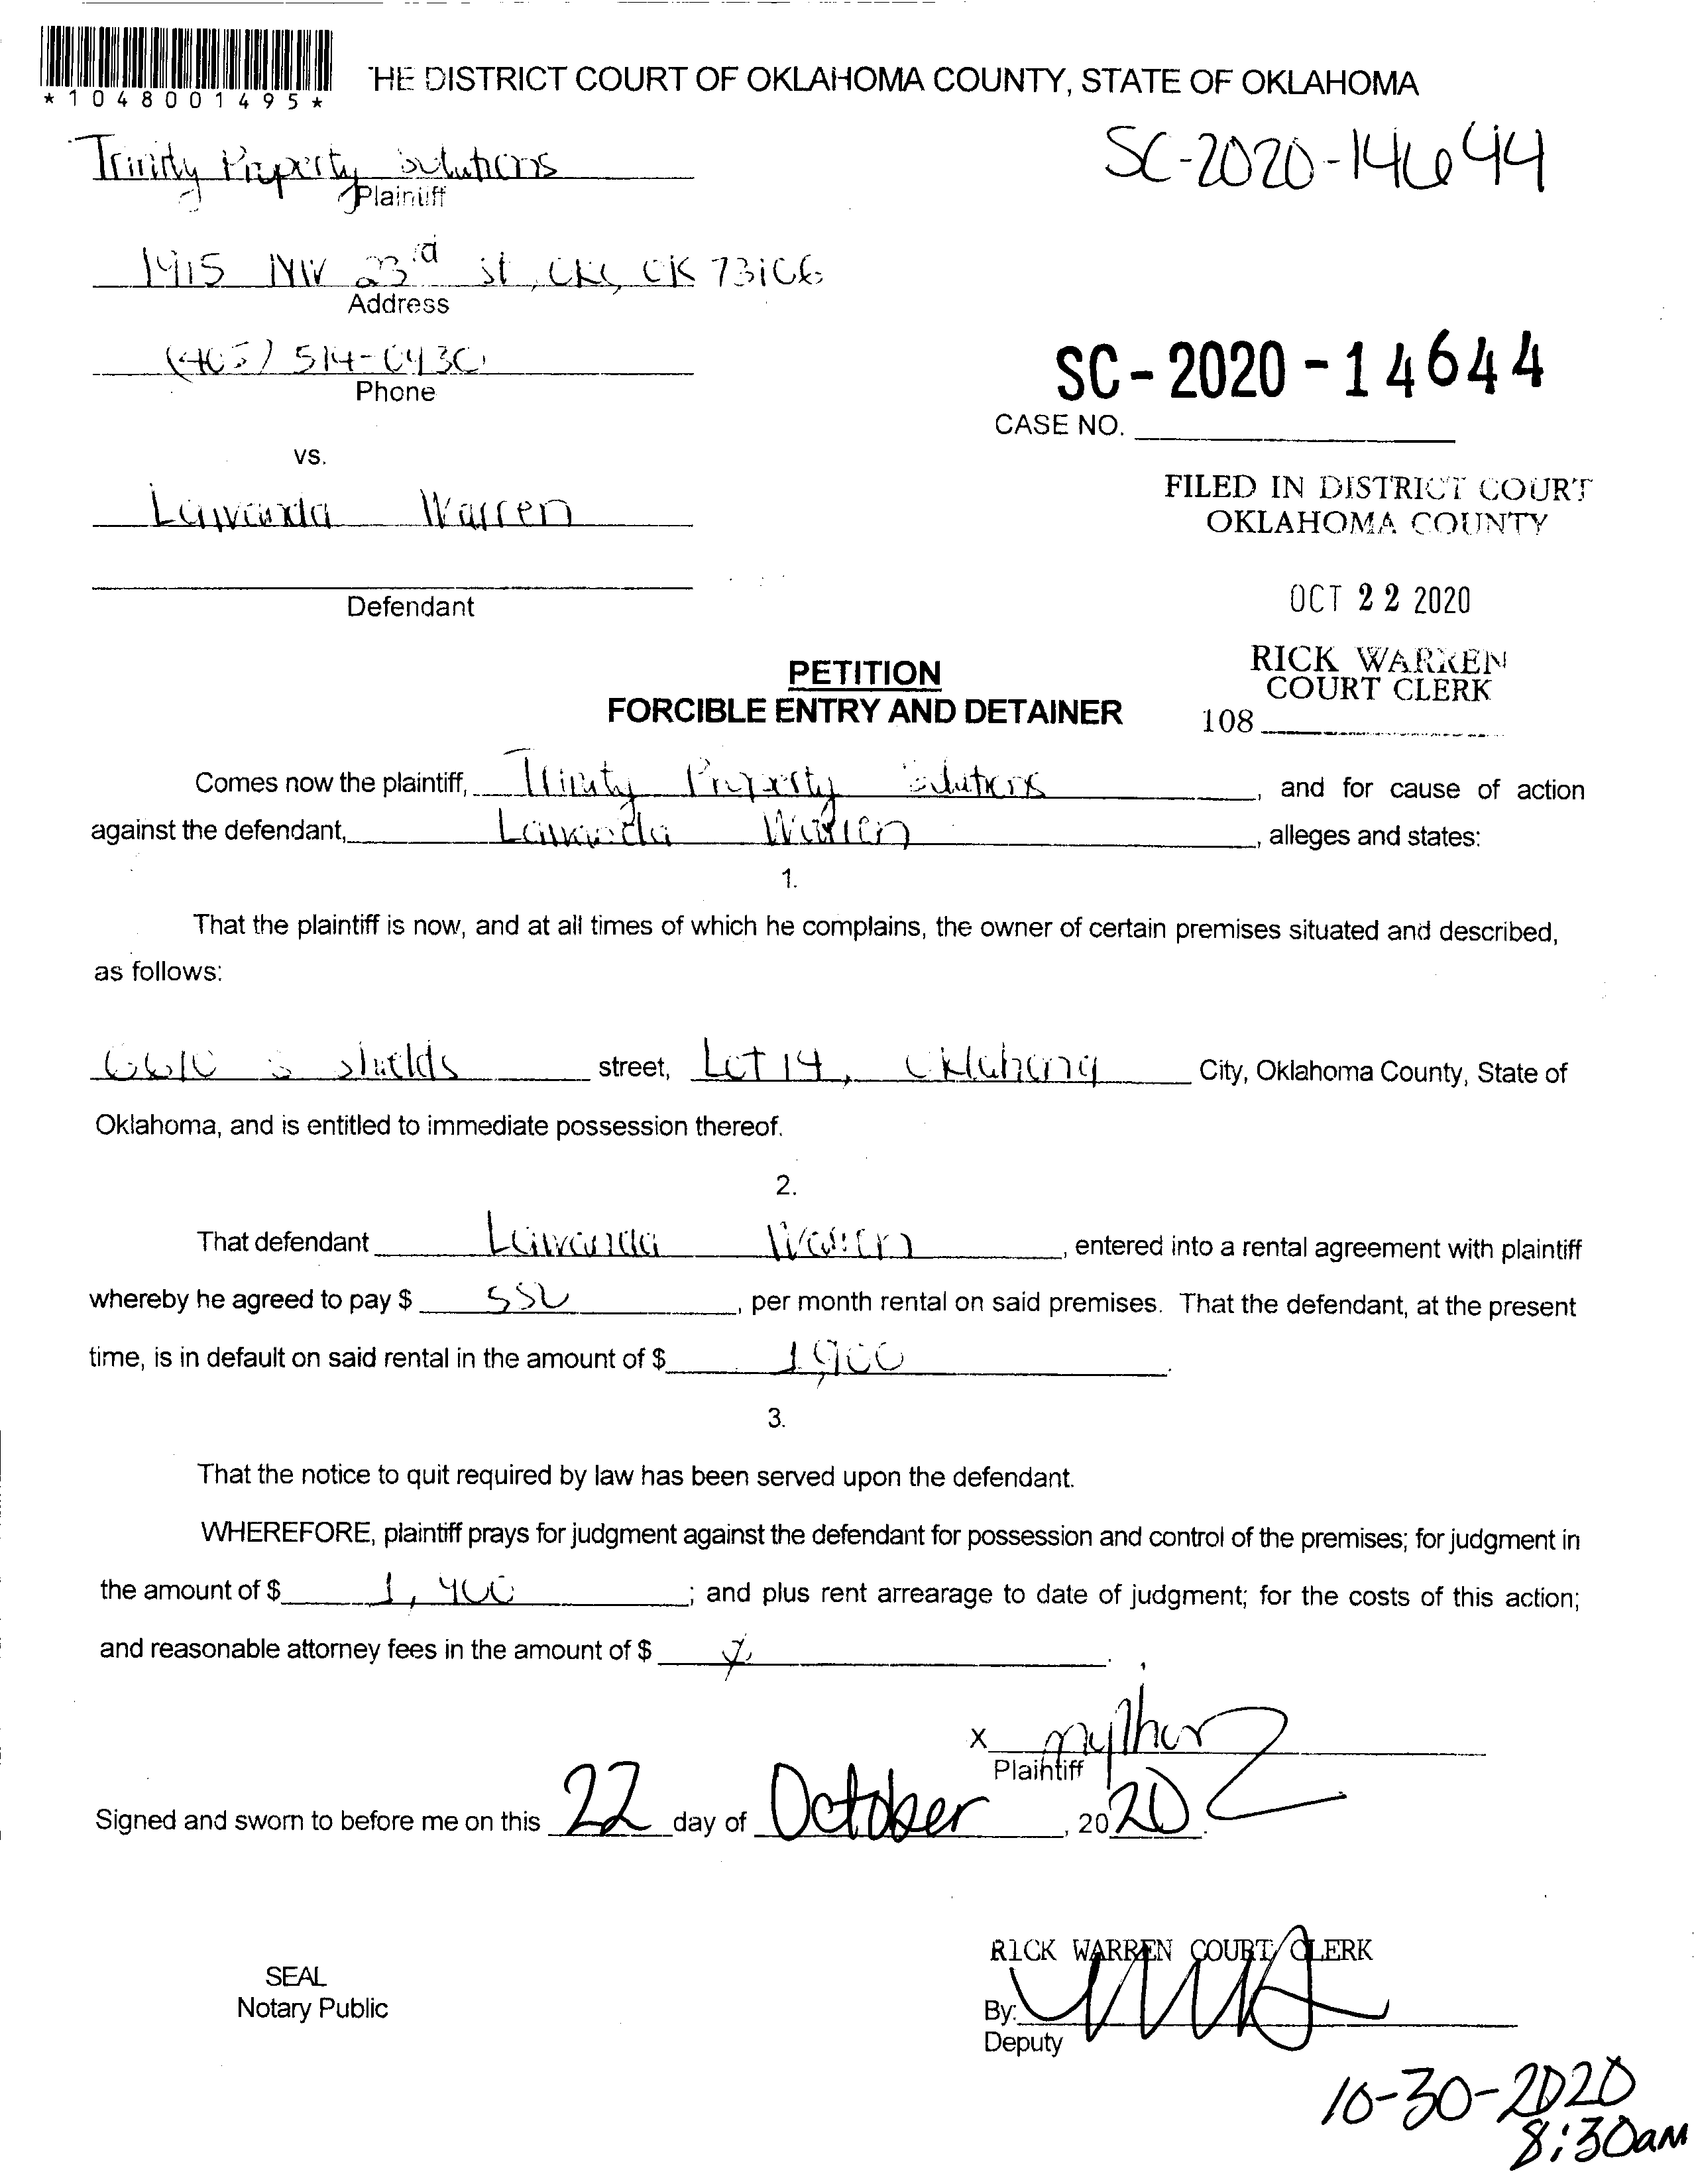 *1048001495*
HE DISTRICT COURT OF OKLAHOMA COUNTY, STATE OF OKLAHOMA
Trinity Property Solutions
Plaintiff
SC-2020-14644
1915 NW 23rd st, OKC, OK 73106
Address
(405) 514-0430
Phone
SC-2020-14644
CASE NO.
vs.
Lawanda Warren
FILED IN DISTRICT COURT
OKLAHOMA COUNTY
Defendant
OCT 22 2020
RICK WARREN
COURT CLERK
108
PETITION
FORCIBLE ENTRY AND DETAINER
Comes now the plaintiff, Trinity Property Solutions, and for cause of action
against the defendant, Lawanda Warren, alleges and states:
1.
That the plaintiff is now, and at all times of which he complains, the owner of certain premises situated and described,
as follows:
6610 S shields street, Lot 14, Oklahoma City, Oklahoma County, State of
Oklahoma, and is entitled to immediate possession thereof.
2.
That defendant Lawanda Warren, entered into a rental agreement with plaintiff
whereby he agreed to pay $ 550, per month rental on said premises. That the defendant, at the present
time, is in default on said rental in the amount of $ 1,900.
3.
That the notice to quit required by law has been served upon the defendant.
WHEREFORE, plaintiff prays for judgment against the defendant for possession and control of the premises; for judgment in
the amount of $ 1,900; and plus rent arrearage to date of judgment; for the costs of this action;
and reasonable attorney fees in the amount of $
X
Plaintiff
Signed and sworn to before me on this 22 day of October, 2020.
RICK WARREN COURT CLERK
SEAL
Notary Public
By:
Deputy
10-30-2020
8:30am